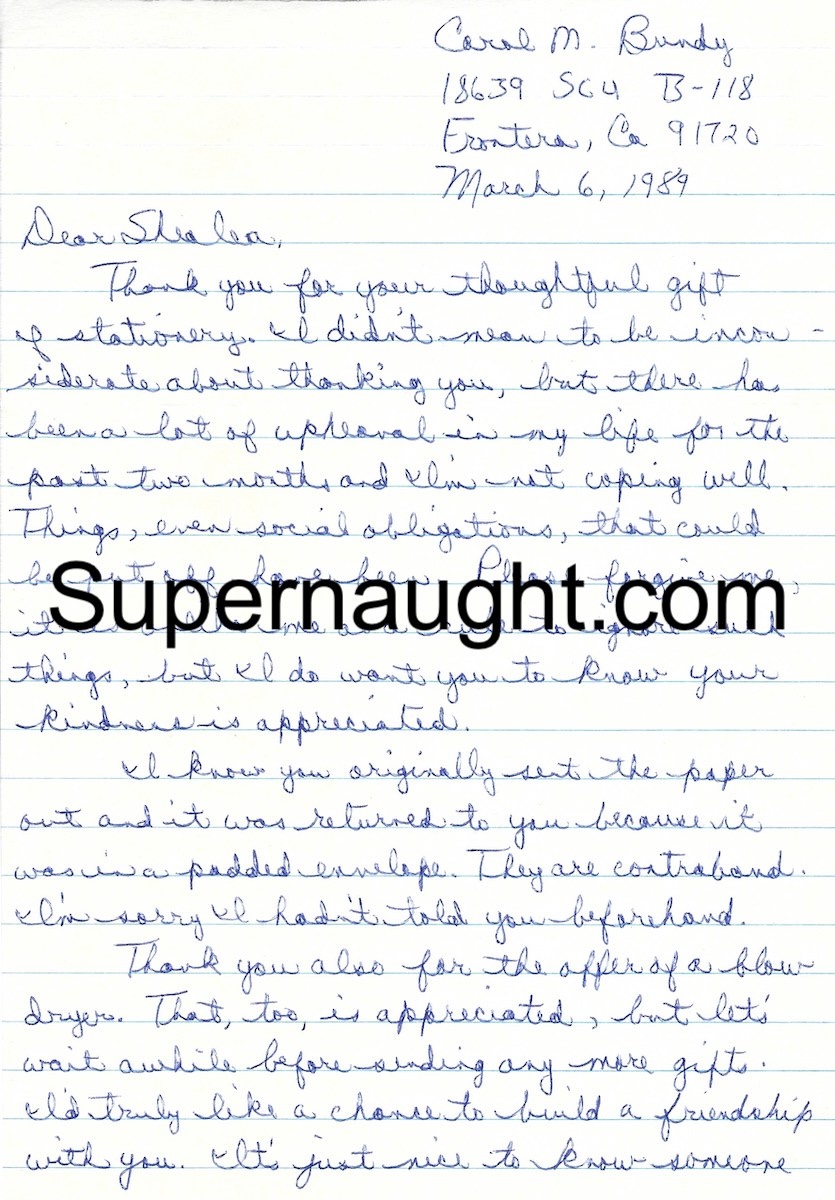 Carol M. Bundy
18639 SCU B-118
Frontera, Ca 91720
March 6, 1989
Dear Shealea,
Thank you for your thoughtful gift
of stationery. I didn't mean to be incon-
siderate about thanking you, but there has
been a lot of upheaval in my life for the
past two months and I'm not coping well.
Things, even social obligations, that could
be put off have been. Please forgive me,
Supernaught.com
me as a rule to ignore such
things, but I do want you to know your
kindness is appreciated.
I know you originally sent the paper
out and it was returned to you because it
was in a padded envelope. They are contraband.
I'm sorry I hadn't told you beforehand.
Thank you also for the offer of a blow
dryer. That, too, is appreciated, but let's
wait awhile before sending any more gifts.
I'd truly like a chance to build a friendship
with you. It's just nice to know someone